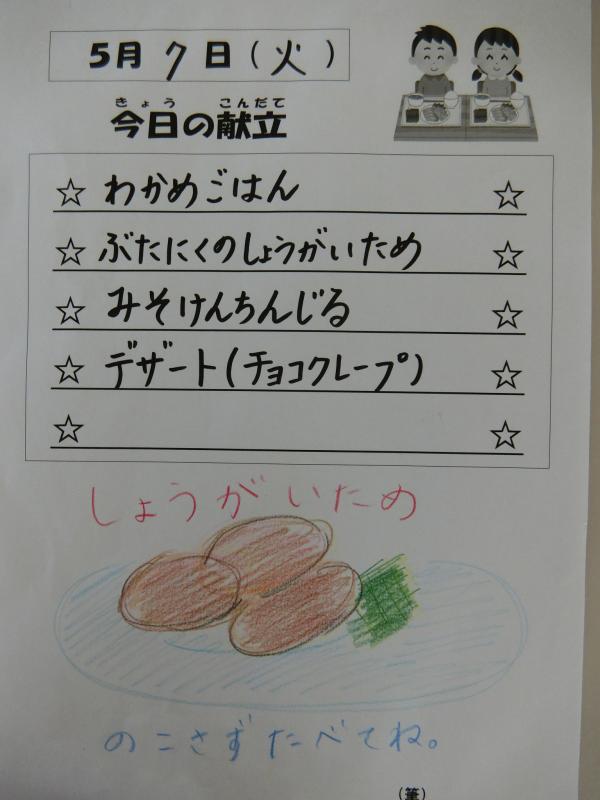 5月7日(火)
きょう こんだて
今日の献立
☆ わかめごはん ☆
☆ ぶたにくのしょうがいため ☆
☆ みそけんちんじる ☆
☆ デザート(チョコクレープ) ☆
☆ ☆
しょうがいため
のこさずたべてね。
(筆)